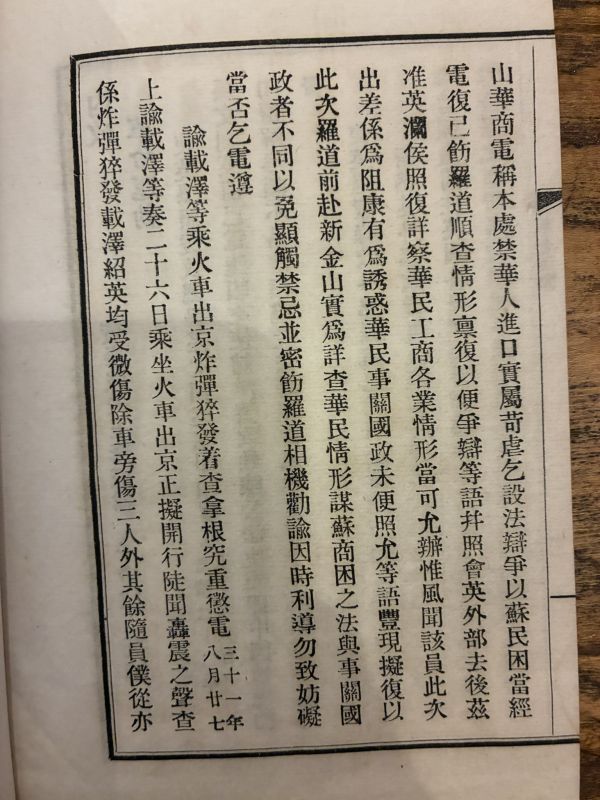 山華商電稱本處禁華人進口實屬苛虐乞設法辯爭以蘇民困當經
電復已飭羅道順查情形稟復以便爭辯等語幷照會英外部去後茲
准英瀾侯照復詳察華民工商各業情形當可允辦惟風聞該員此次
出差係爲阻康有爲誘惑華民事關國政未便照允等語豐現擬復以
此次羅道前赴新金山實爲詳查華民情形謀蘇商困之法與事關國
政者不同以免顯觸禁忌並密飭羅道相機勸諭因時利導勿致妨礙
當否乞電遵
諭載澤等乘火車出京炸彈猝發着查拿根究重懲電三十一年八月廿七
上諭載澤等奏二十六日乘坐火車出京正擬開行陡聞轟震之聲查
係炸彈猝發載澤紹英均受微傷除車旁傷三人外其餘隨員僕從亦